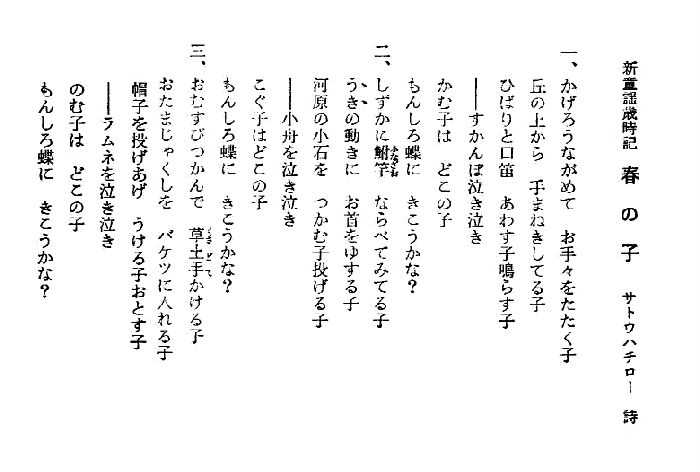 新童謡歳時記 春の子 サトウハチロー 詩
一、かげろうながめて お手々をたたく子
丘の上から 手まねきしてる子
ひばりと口笛 あわす子鳴らす子
――すかんぽ泣き泣き
かむ子は どこの子
もんしろ蝶に きこうかな?
二、しずかに鮒竿 ならべてみてる子
うきの動きに お首をゆする子
河原の小石を つっかむ子投げる子
――小舟を泣き泣き
こぐ子はどこの子
もんしろ蝶に きこうかな?
三、おむすびつかんで 草土手かける子
おたまじゃくしを バケツに入れる子
帽子を投げあげ うける子おとす子
――ラムネを泣き泣き
のむ子は どこの子
もんしろ蝶に きこうかな?